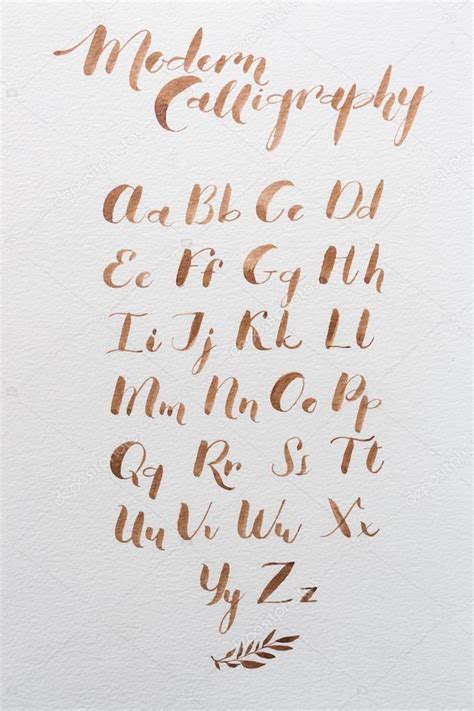 Modern
Calligraphy
Aa Bb Cc Dd
Ee Ff Gg Hh
Ii Jj Kk Ll
Mm Nn Oo Pp
Qq Rr Ss Tt
Uu Vv Ww Xx
Yy Zz